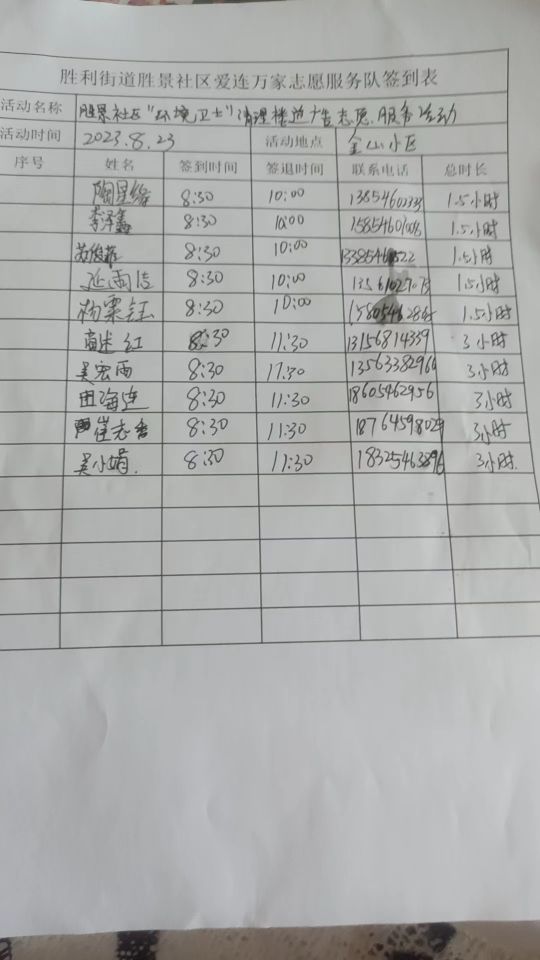 胜利街道胜景社区爱连万家志愿服务队签到表
活动名称 胜景社区“环境卫士”清理楼道广告志愿服务活动
活动时间 2023.8.23 活动地点 金山小区
序号 姓名 签到时间 签退时间 联系电话 总时长
陶星缘 8:30 10:00 1.5小时
李泽鑫 8:30 10:00 1.5小时
8:30 10:00 1.5小时
延雨洁 8:30 10:00 1.5小时
杨霖钰 8:30 10:00 1.5小时
红 8:30 11:30 13156814339 3小时
吴宏西 8:30 11:30 13563382966 3小时
田海连 8:30 11:30 18605462956 3小时
崔志 8:30 11:30 18764598029 3小时
吴小娟. 8:30 11:30 18325463896 3小时.